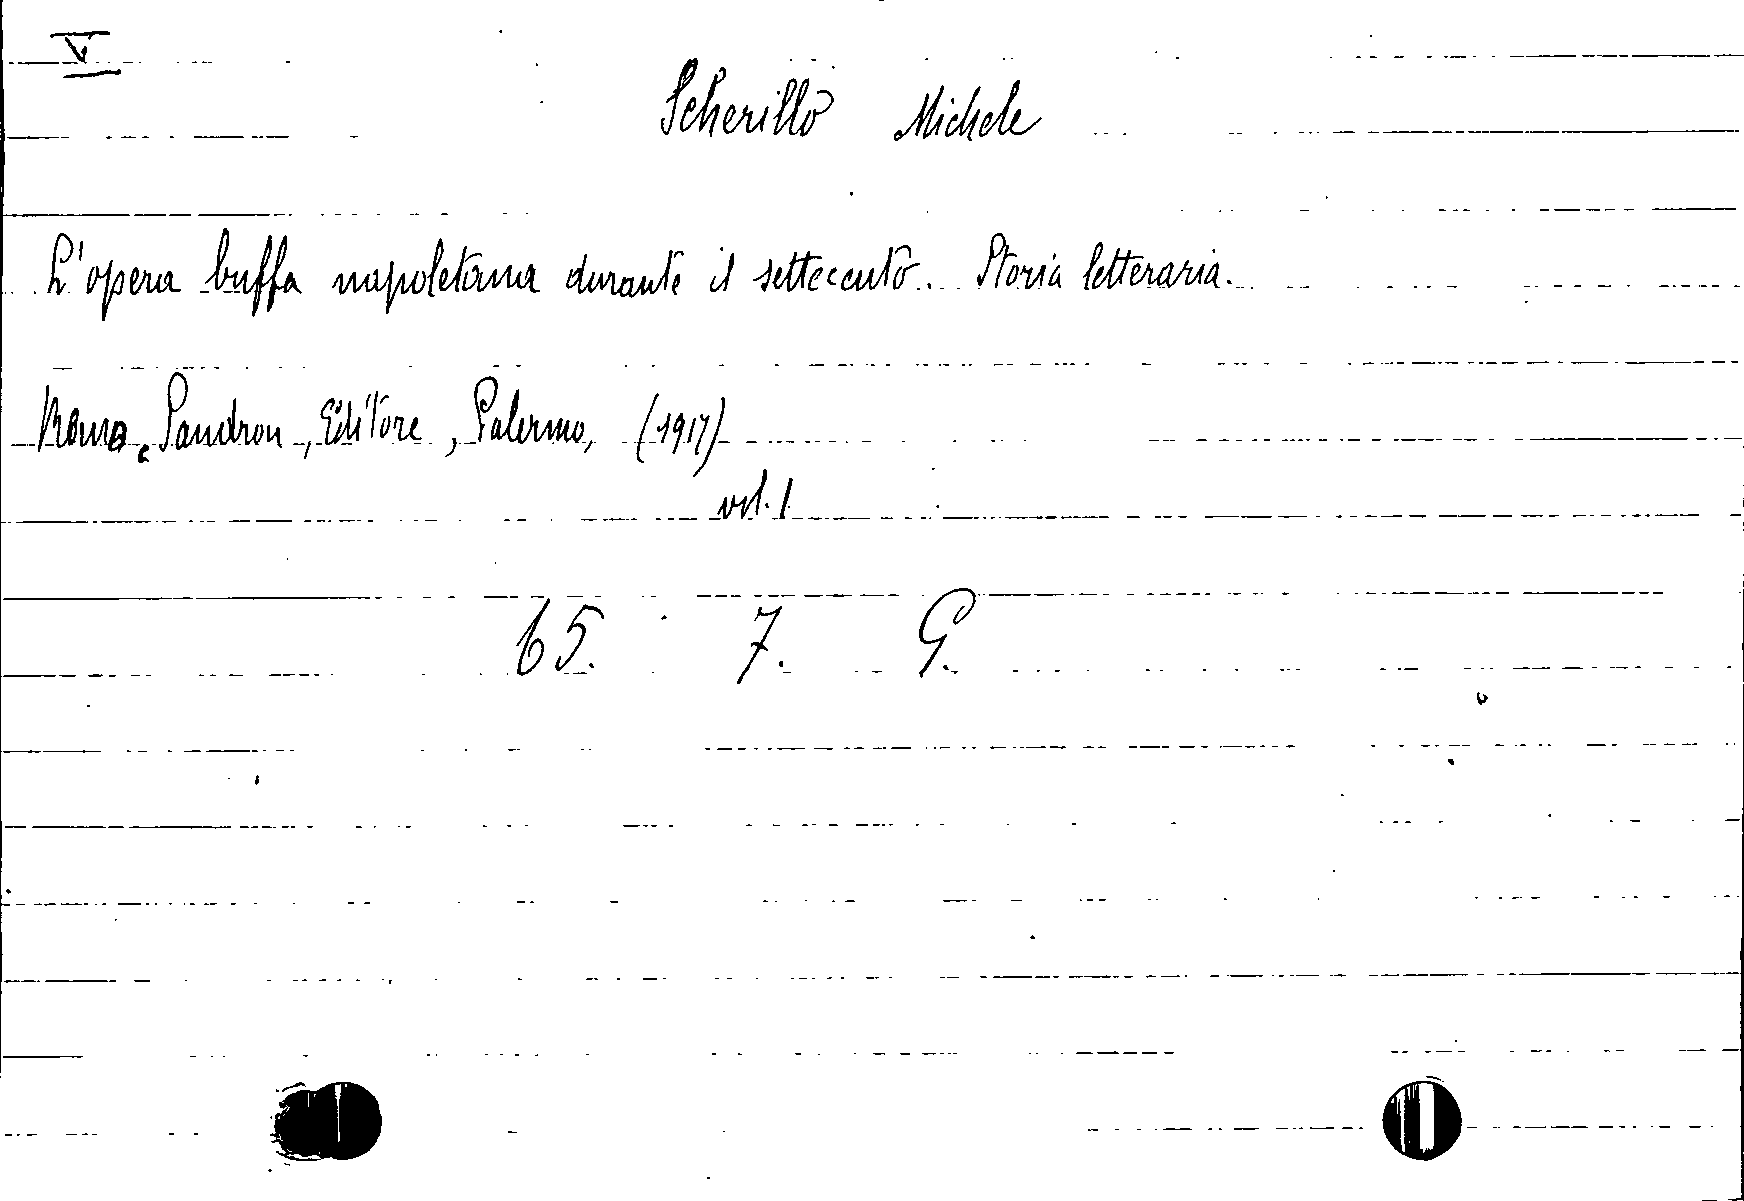 V
Scherillo Michele
L'opera buffa napoletana durante il settecento. Storia letteraria.
Remo Sandron, Editore, Palermo, (1917)
vol. 1
65. 7. G.